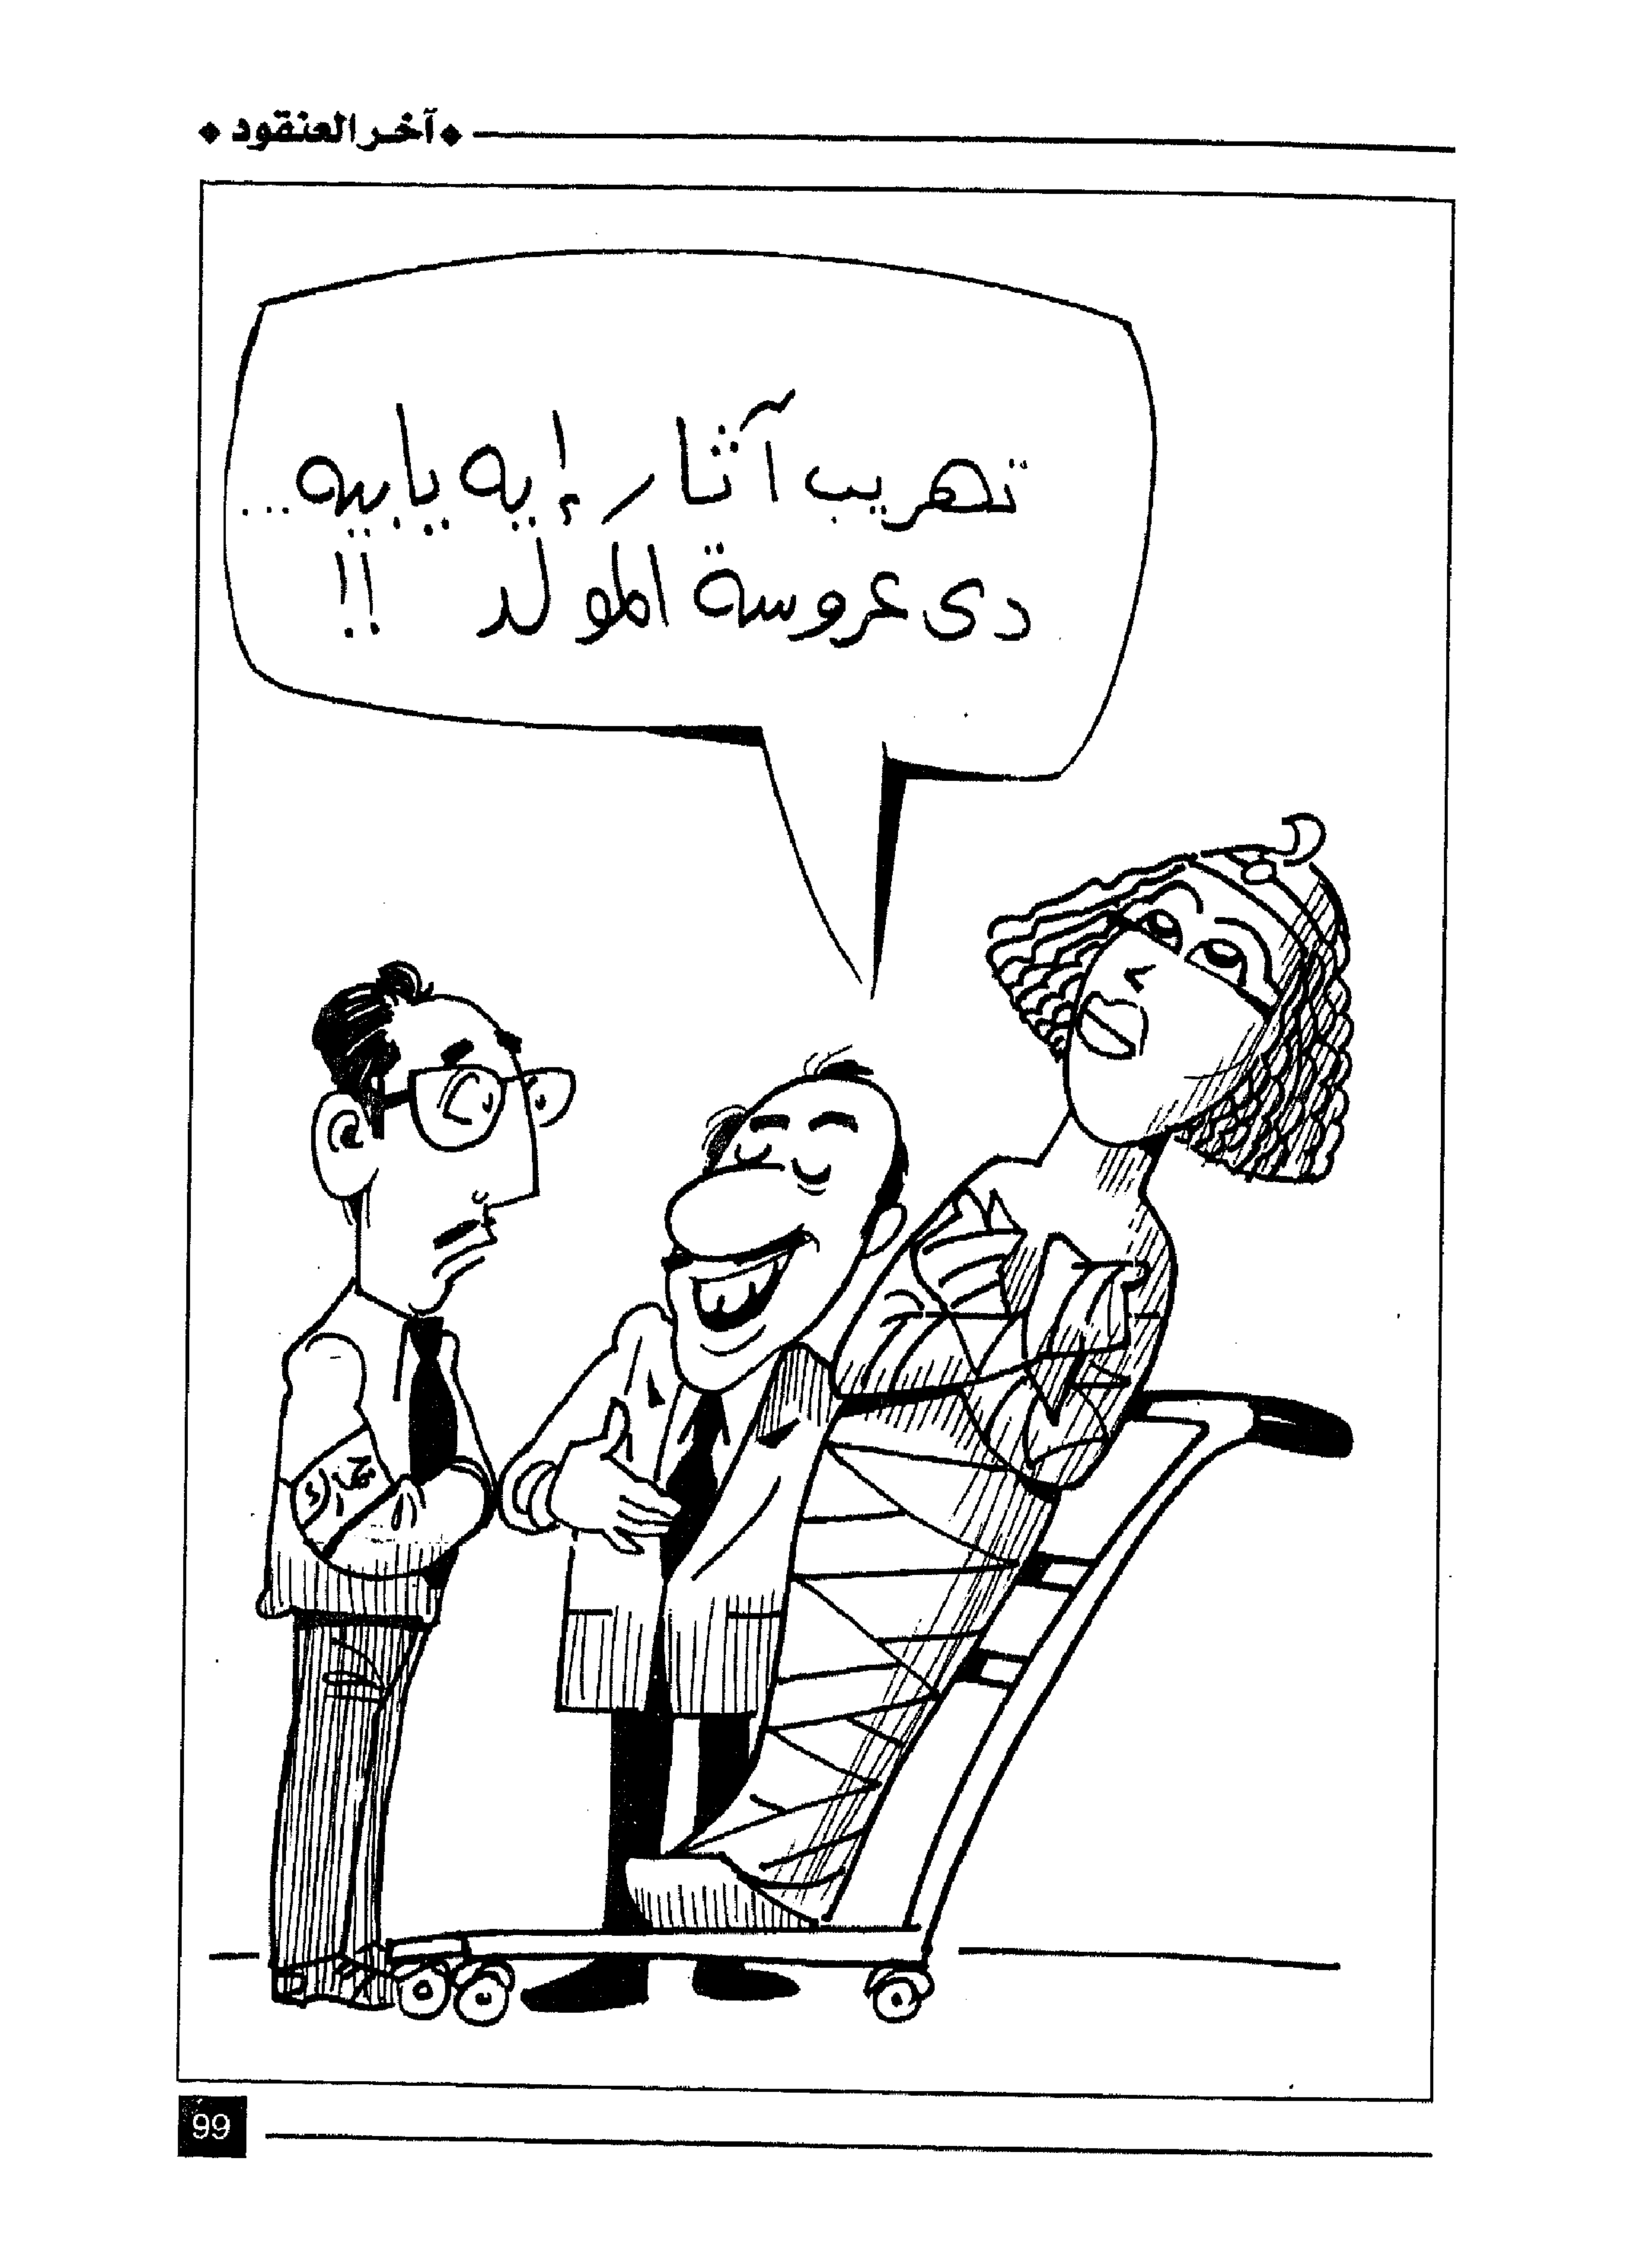 آخر العنقود
تهريب آثار إيه يا بيه...
دى عروسة المولد !!
جمارك
99